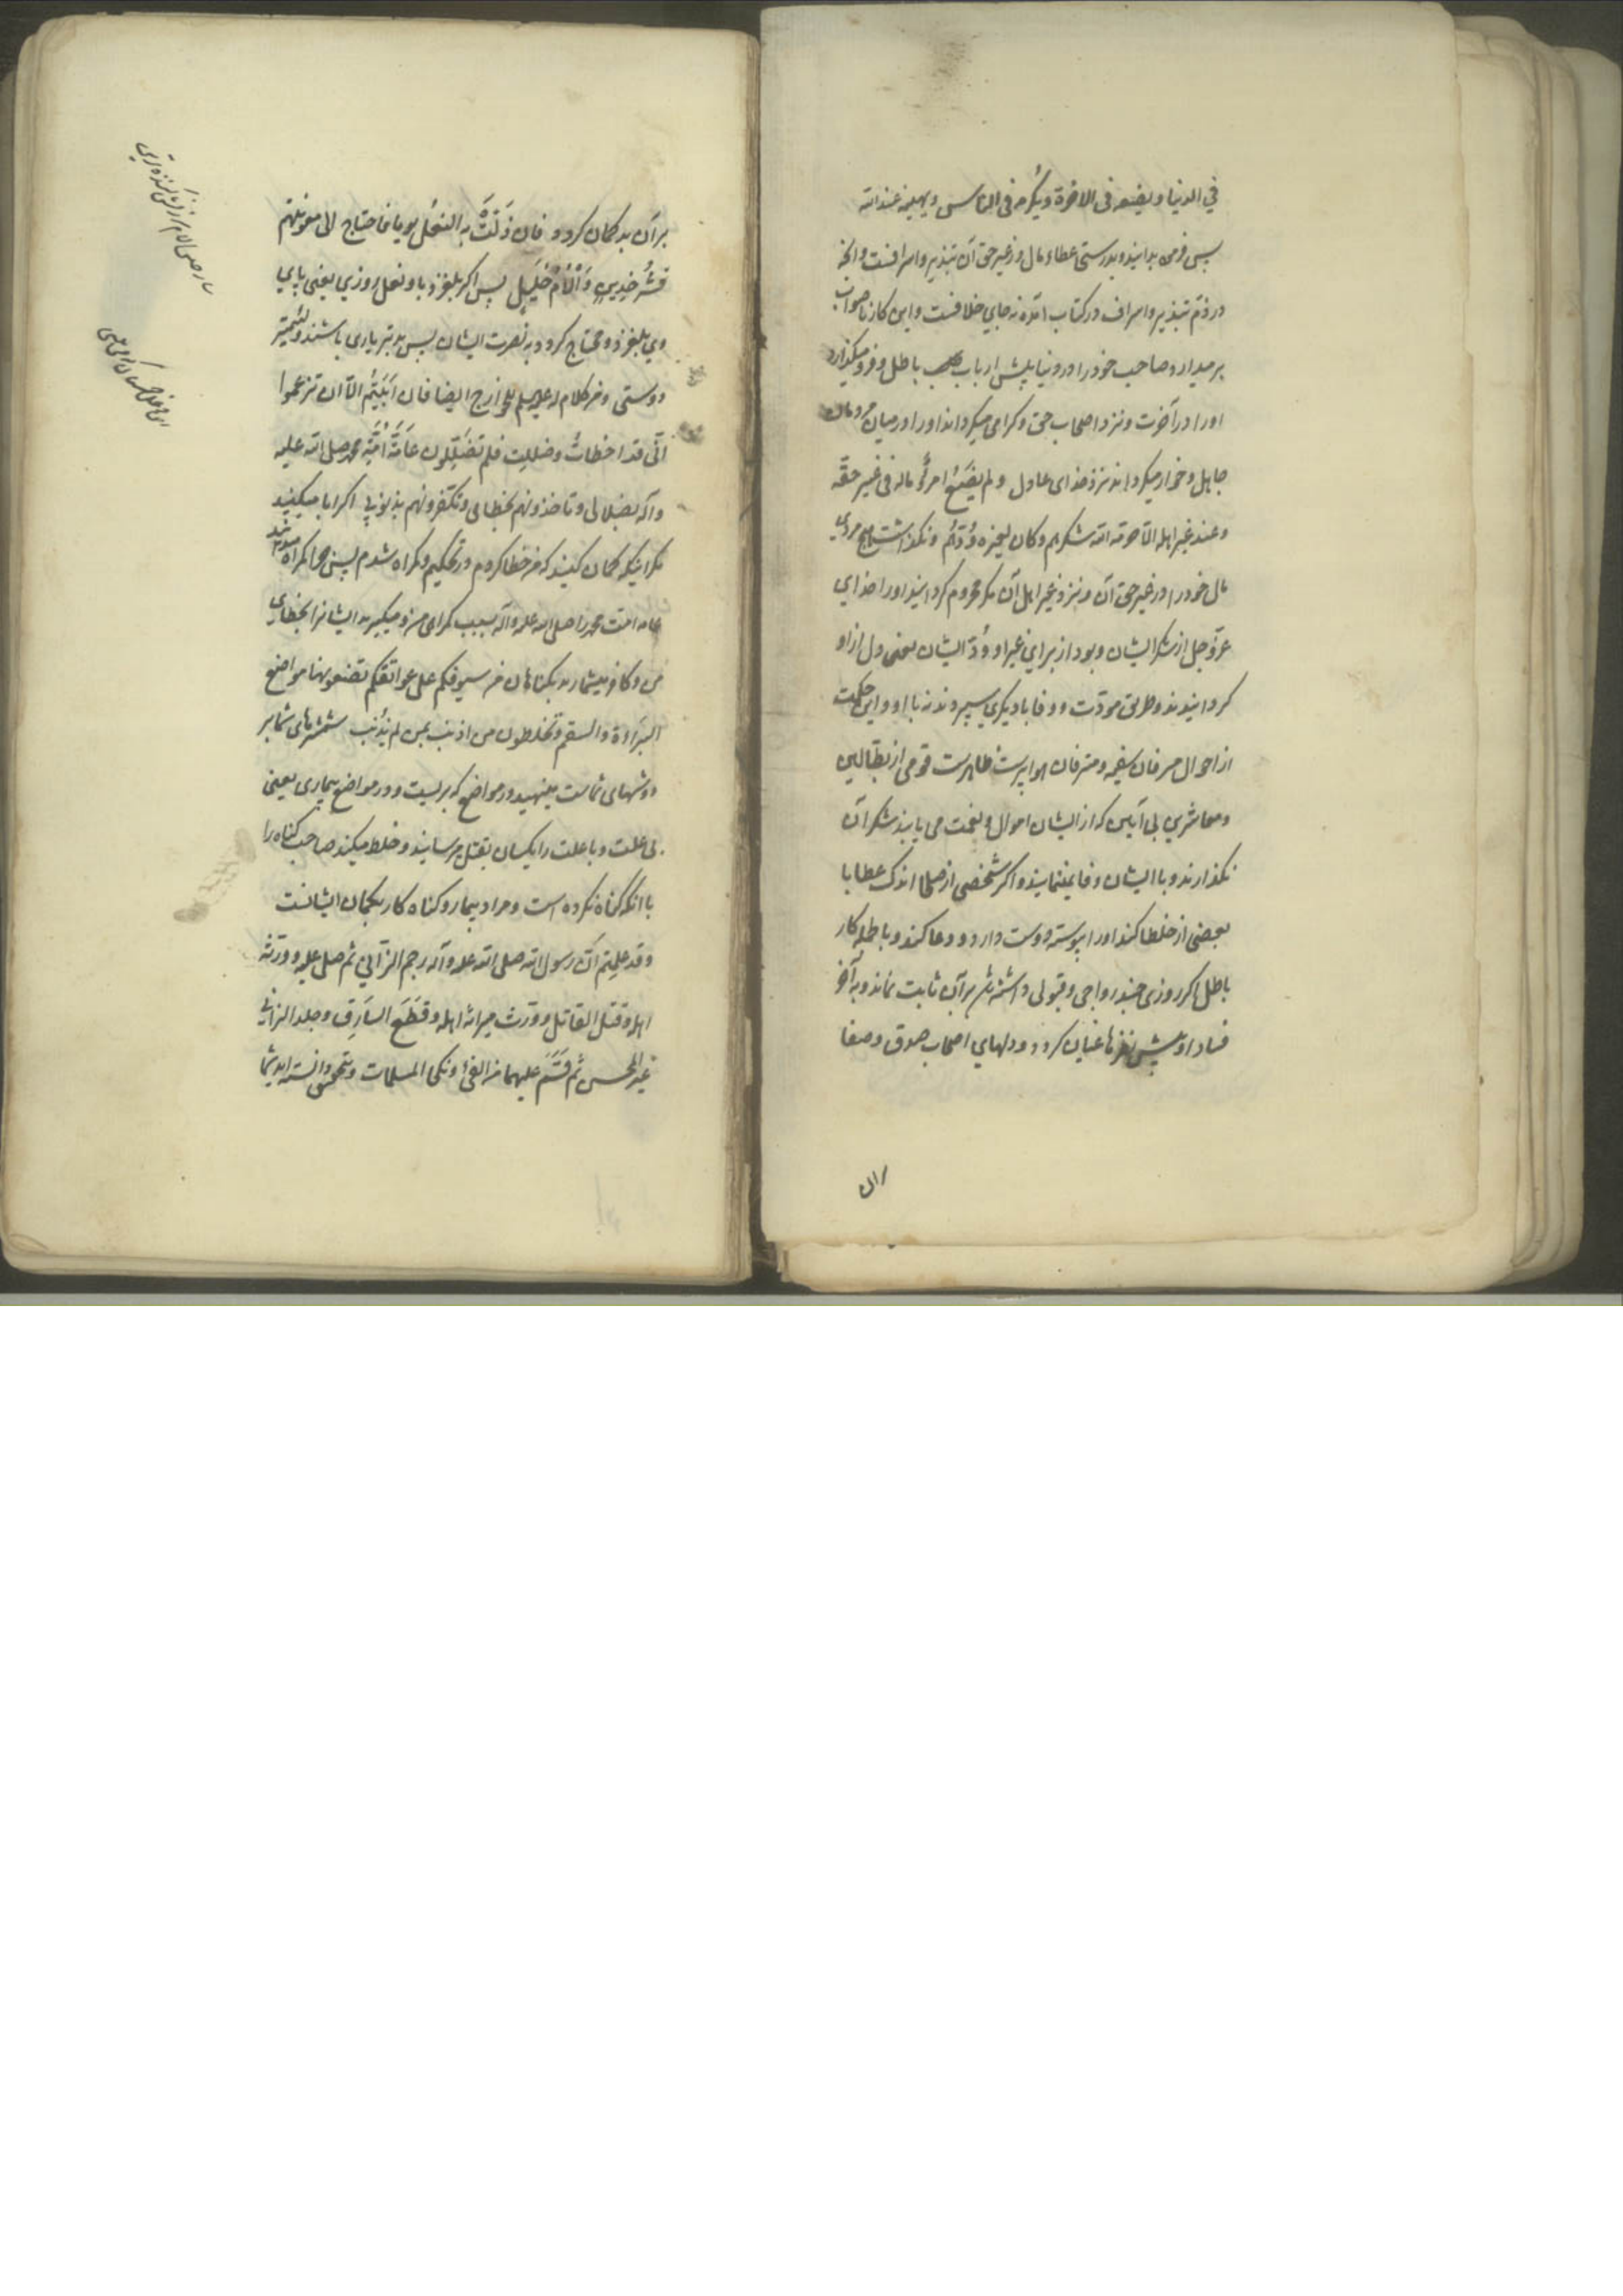 في الدنيا و يضعه في الاخرة و يكرمه في الناس و يهينه عند الله
پس فرمود بدانيد و بدرستي عطاء مال در غير حق آن تبذير و اسرافست و انچه
در ذم تبذير و اسراف در كتاب آمده نه جاي خلافست و اين كار ناصواب
برميدارد صاحب خود را در دنيا پيش ارباب باطل و فرو ميگذارد
او را در آخرت و نزد اصحاب حق و گرامي ميگرداند او را در ميان مردمان
جاهل و خوار ميگرداند نزد خداي عادل و لم يضع امرؤ ماله في غير حقه
و عند غير اهله الا حرمه الله شكرهم و كان لغيره ودهم و نگذاشت هيچ مردي
مال خود را در غير حق آن و نزد غير اهل آن مگر محروم گردانيد او را خداي
عزوجل از شكر ايشان و بود از براي غير او ود ايشان يعني دل از او
گردانيدند و طريق مودت و وفا با ديگري سپردند نه با او و اين حكمت
از احوال مسرفان سفيه و مترفان هواپرست ظاهرست قومي از بطالين
و معاشري بي آيين كه از ايشان اموال و نعمت مي يابند شكر آن
نگذارند و با ايشان وفا ننمايند و اگر شخصي از صلحا اندك عطا با
بعضي از خلطا كند او را پيوسته دوست دارد و دعا كند و باطله كار
باطل اگر روزي چند رواجي و قبولي داشته باشد بر آن ثابت نماند و به آخر
فساد او پيش نظرها عيان گردد و دلهاي اصحاب صدق و صفا
بر آن بد گمان گردد فان زلت به النعل يوما فاحتاج الي معونتهم
فشر خدين و الام خليل پس اگر بلغزد با و نعل روزي يعني پاي
وي بلغزد و محتاج گردد به نصرت ايشان پس بدتر ياري باشند و لئيمتر
دوستي و من كلام له عليه السلم للخوارج ايضا فان ابيتم الا ان تزعموا
اني قد اخطأت و ضللت فلم تضللون عامة امة محمد صلى الله عليه
و آله بضلالي و تاخذونهم بخطائي و تكفرونهم بذنوبي اگر ابا ميكنيد
مگر اينكه گمان كنيد كه من خطا كردم در تحكيم و گمراه شدم پس چرا گمراه ميدانيد
عامه امت محمد را صلى الله عليه و آله بسبب گمراهي من و ميگيريد ايشانرا بخطاي
من و كافر ميشماريد بگناهان من سيوفكم على عواتقكم تضعونها مواضع
البراءة و السقم و تخلطون من اذنب بمن لم يذنب شمشيرهاي شما بر
دوشهاي شماست مينهيد در مواضع كه بريست و در مواضع بيماري يعني
بي علت و با علت را يكسان بقتل ميرسانيد و خلط ميكنيد صاحب گناه را
با آنكه گناه نكرده است و مراد بيمار و گناه كار بگمان ايشانست
و قد علمتم ان رسول الله صلى الله عليه و آله رجم الزاني ثم صلى عليه و ورثه
اهله و قتل القاتل و ورث ميراثه اهله و قطع السارق و جلد الزاني
غير المحصن ثم قسم عليهما من الفئ و نكحا المسلمات و بتحقيق دانسته ايد شما